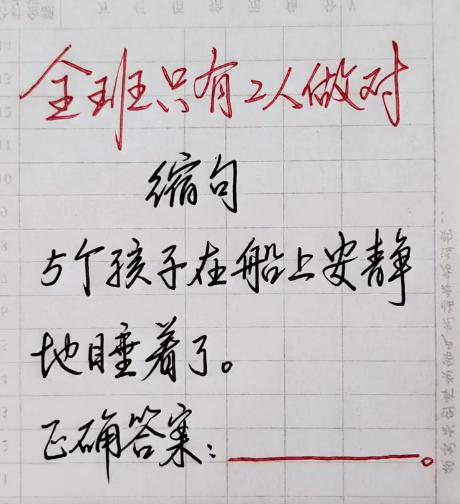 全班只有2人做对
缩句
5个孩子在船上安静
地睡着了。
正确答案:________。